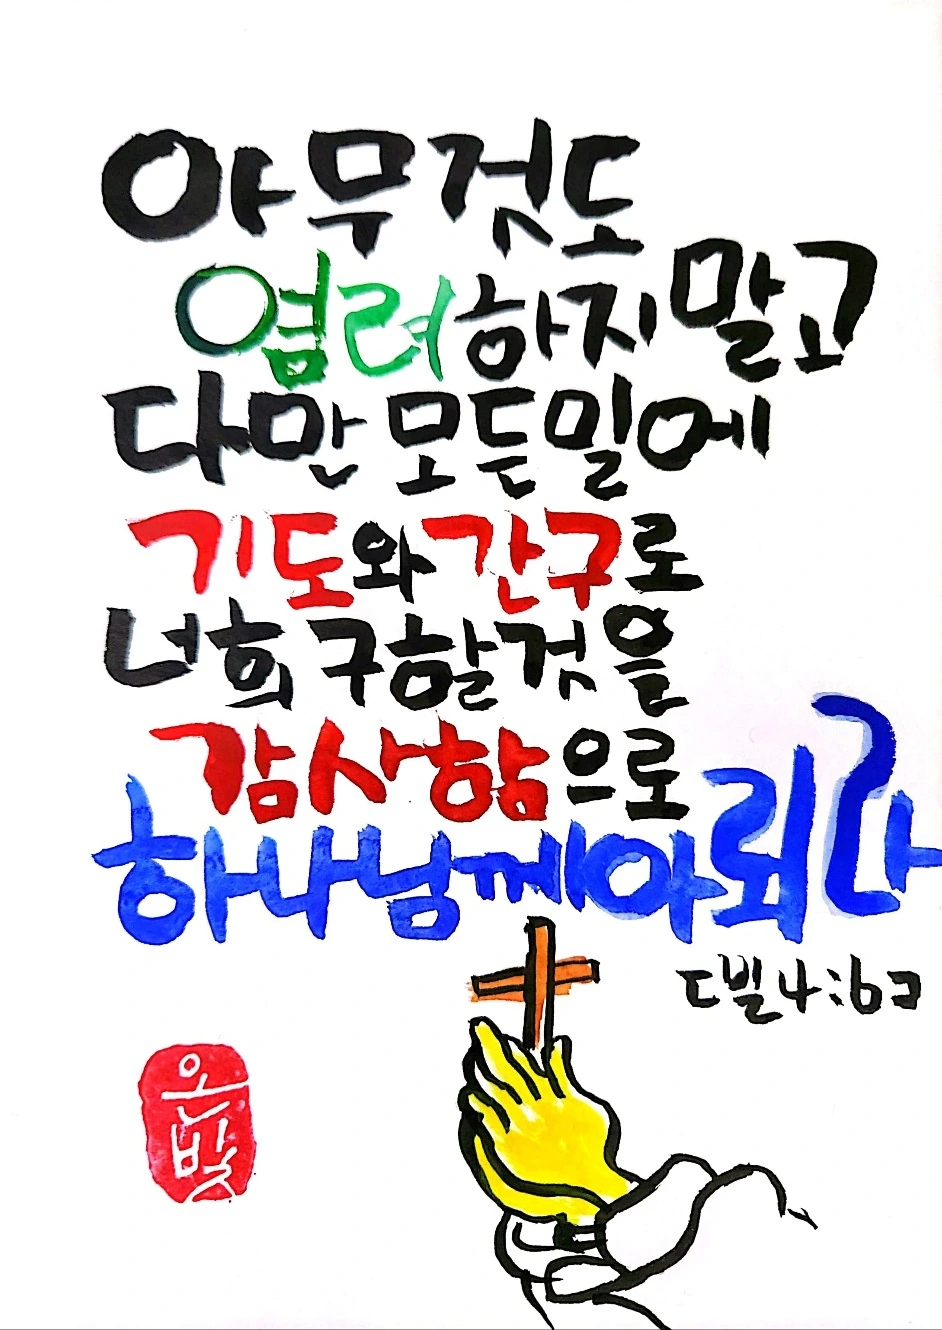 아무것도
염려하지말고
다만 모든일에
기도와 간구로
너희 구할것을
감사함으로
하나님께아뢰라
[빌4:6]
은빛